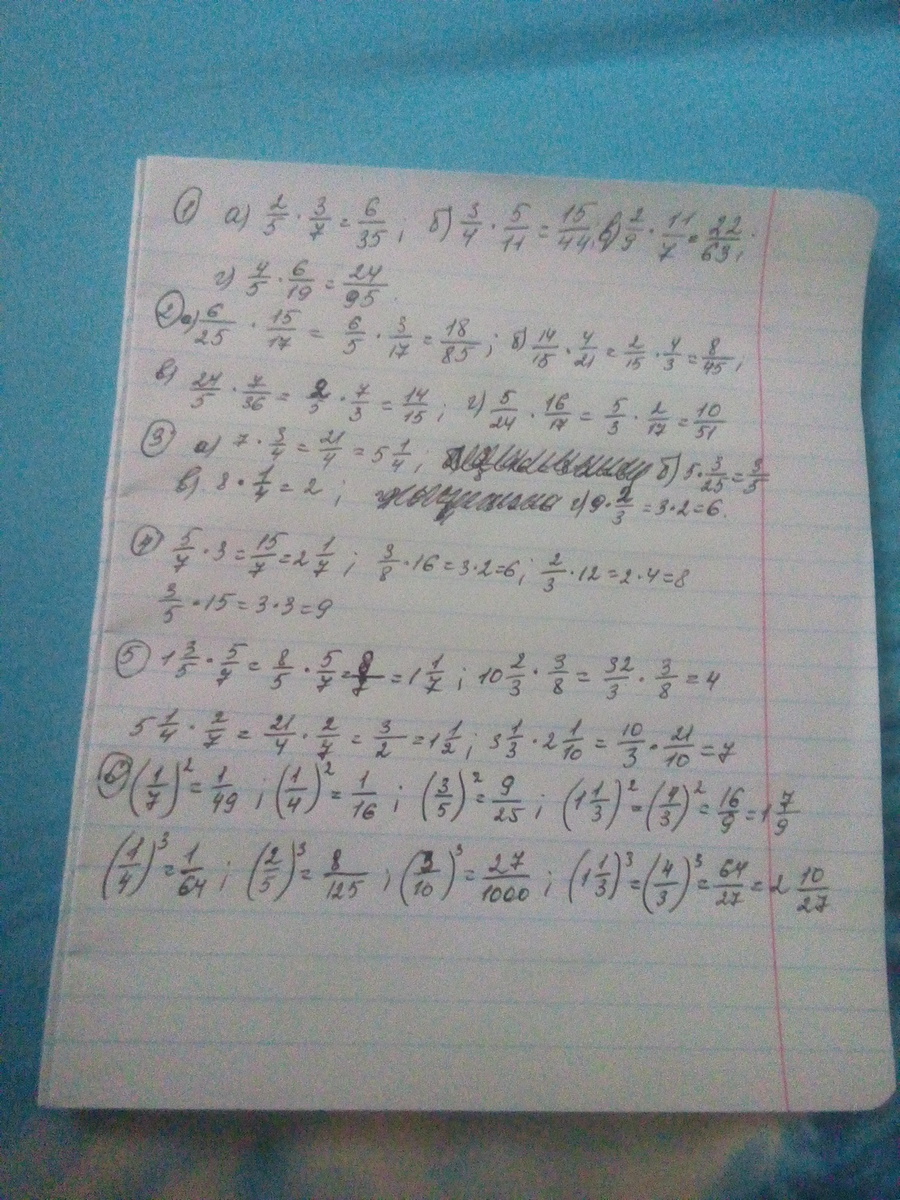 ① а) 2/5 · 3/7 = 6/35; б) 3/4 · 5/11 = 15/44; в) 2/9 · 11/7 = 22/63;
г) 4/5 · 6/19 = 24/95.
② а) 6/25 · 15/17 = 6/5 · 3/17 = 18/85; б) 14/15 · 4/21 = 2/15 · 4/3 = 8/45;
в) 24/5 · 7/36 = 2/5 · 7/3 = 14/15; г) 5/24 · 16/17 = 5/3 · 2/17 = 10/51
③ а) 7 · 3/4 = 21/4 = 5 1/4; б) 5 · 3/25 = 3/5
в) 8 · 1/4 = 2; г) 9 · 2/3 = 3 · 2 = 6.
④ 5/7 · 3 = 15/7 = 2 1/7; 3/8 · 16 = 3 · 2 = 6; 2/3 · 12 = 2 · 4 = 8
3/5 · 15 = 3 · 3 = 9
⑤ 1 3/5 · 5/7 = 8/5 · 5/7 = 8/7 = 1 1/7; 10 2/3 · 3/8 = 32/3 · 3/8 = 4
5 1/4 · 2/7 = 21/4 · 2/7 = 3/2 = 1 1/2; 3 1/3 · 2 1/10 = 10/3 · 21/10 = 7
⑥ (1/7)² = 1/49; (1/4)² = 1/16; (3/5)² = 9/25; (1 1/3)² = (4/3)² = 16/9 = 1 7/9
(1/4)³ = 1/64; (2/5)³ = 8/125; (3/10)³ = 27/1000; (1 1/3)³ = (4/3)³ = 64/27 = 2 10/27